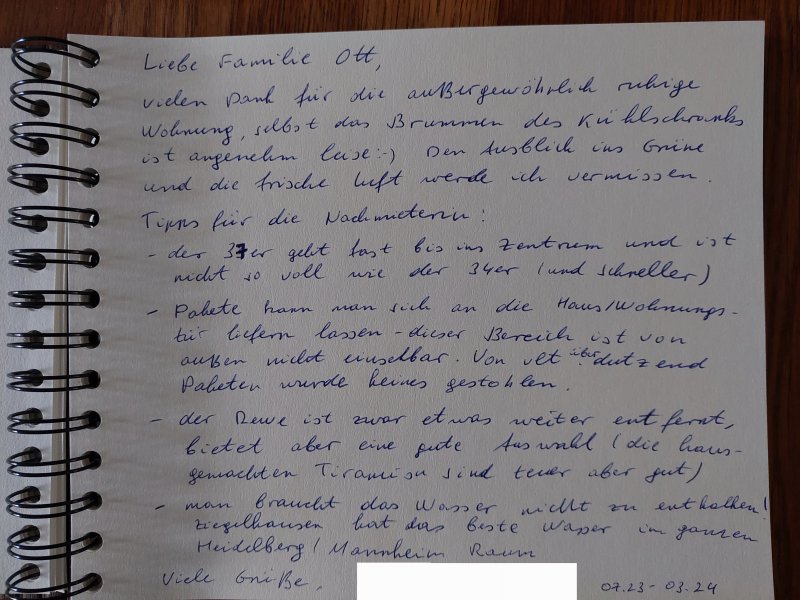 Liebe Familie Ott,
vielen Dank für die außergewöhrlich ruhige
Wohnung, selbst das Brummen des Kühlschranks
ist angenehm leise:-) Den Ausblick ins Grüne
und die frische Luft werde ich vermissen.
Tipps für die Nachmieterin:
- der 37er geht fast bis ins Zentrum und ist
nicht so voll wie der 34er (und schneller)
- Pakete kann man sich an die Haus/Wohnungs-
tür liefern lassen - dieser Bereich ist von
außen nicht einselbar. Von über dutzend
Paketen wurde keines gestohlen.
- der Rewe ist zwar etwas weiter entfernt,
bietet aber eine gute Auswahl (die haus-
gemachten Tiramisu sind teuer aber gut)
- man braucht das Wasser nicht zu entkalken!
Ziegelhausen hat das beste Wasser im ganzen
Heidelberg/Mannheim Raum
Viele Grüße,
07.23 - 03.24